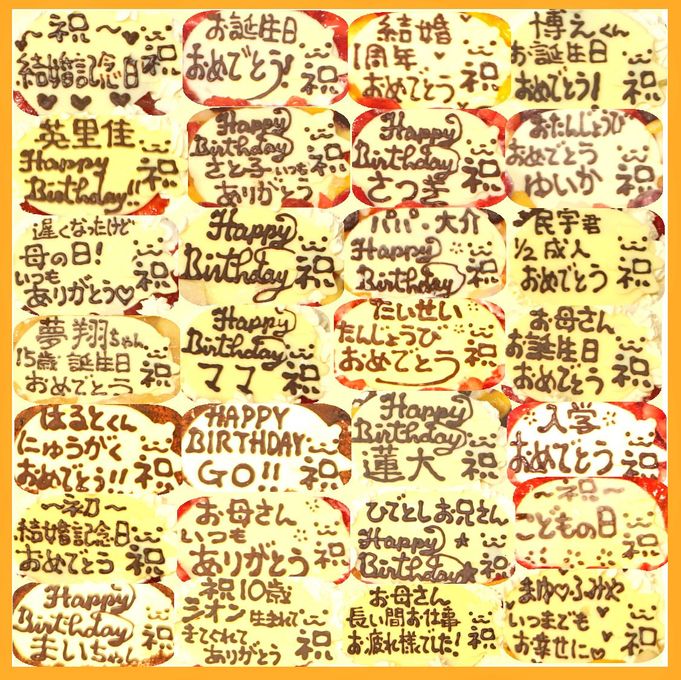 ～祝～
結婚記念日
祝
お誕生日
おめでとう!
祝
結婚
1周年
おめでとう
祝
博えくん
お誕生日
おめでとう!
祝
英里佳
Happy
Birthday!!
祝
Happy
Birthday
さと子いつも
ありがとう
祝
Happy
Birthday
さつき
祝
おたんじょうび
おめでとう
ゆいか
祝
遅くなったけど
母の日!
いつも
ありがとう♡
祝
Happy
Birthday
祝
パパ・大介
Happy
Birthday
祝
民宇君
1/2成人
おめでとう
祝
夢翔ちゃん
15歳 誕生日
おめでとう
祝
Happy
Birthday
ママ
祝
たいせい
たんじょうび
おめでとう
祝
お母さん
お誕生日
おめでとう
祝
はるとくん
にゅうがく
おめでとう!!
祝
HAPPY
BIRTHDAY
GO!!
祝
Happy
Birthday
蓮大
祝
入学
おめでとう
祝
～初～
結婚記念日
おめでとう
祝
お母さん
いつも
ありがとう
祝
ひでとしお兄さん
Happy
Birthday
祝
～祝～
こどもの日
祝
Happy
Birthday
まいちゃん
祝
祝10歳
シオン生まれて
きてくれて
ありがとう
祝
お母さん
長い間お仕事
お疲れ様でした!
祝
まゆ♡ふみや
いつまでも
お幸せに♡
祝